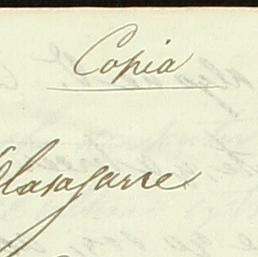 Copia
Olasagarre